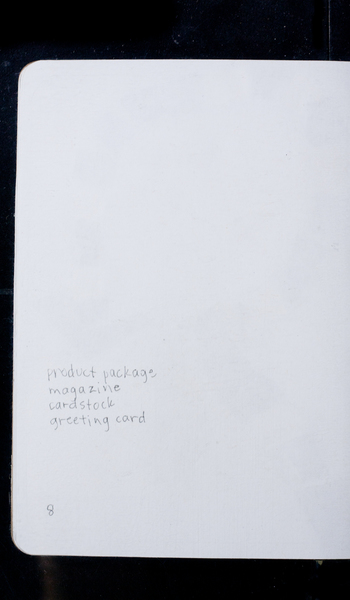 product package
magazine
cardstock
greeting card
8